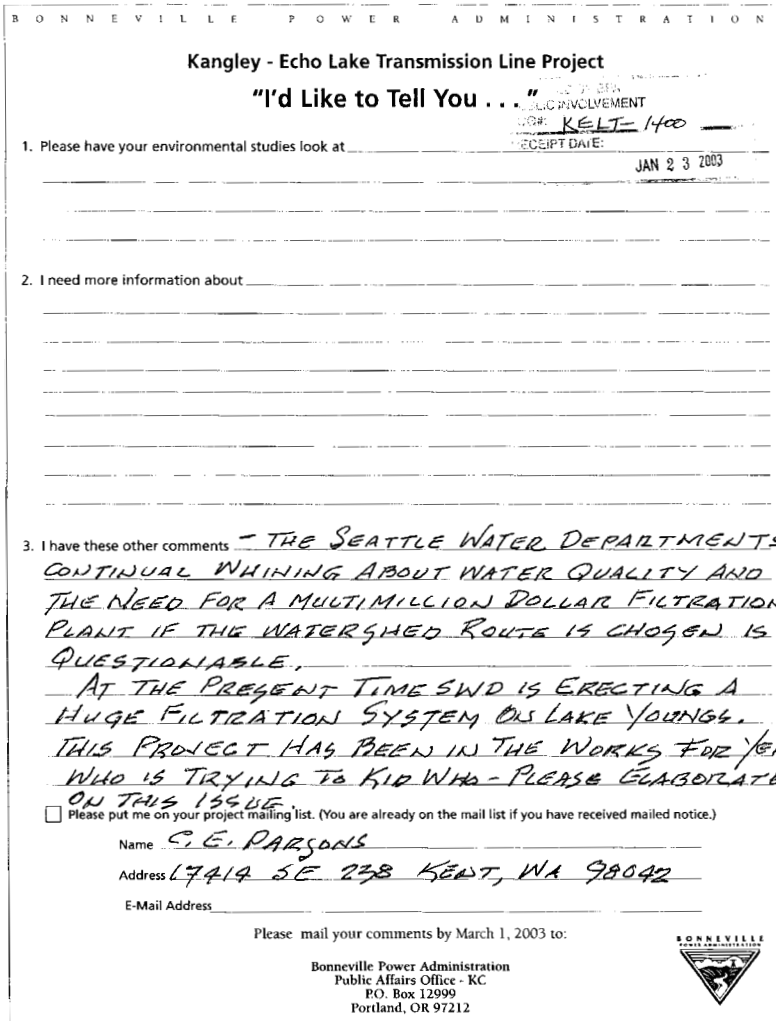 BONNEVILLE POWER ADMINISTRATION
Kangley - Echo Lake Transmission Line Project
"I'd Like to Tell You . . ."
INVOLVEMENT
KELT-1400
RECEIPT DATE:
JAN 23 2003
1. Please have your environmental studies look at
2. I need more information about
3. I have these other comments - THE SEATTLE WATER DEPARTMENTS
CONTINUAL WHINING ABOUT WATER QUALITY AND
THE NEED FOR A MULTIMILLION DOLLAR FILTRATION
PLANT IF THE WATERSHED ROUTE IS CHOSEN IS
QUESTIONABLE.
AT THE PRESENT TIME SWD IS ERECTING A
HUGE FILTRATION SYSTEM ON LAKE YOUNGS.
THIS PROJECT HAS BEEN IN THE WORKS FOR YE
WHO IS TRYING TO KID WHO - PLEASE ELABORATE
ON THIS ISSUE.
Please put me on your project mailing list. (You are already on the mail list if you have received mailed notice.)
Name C. E. PARSONS
Address 17414 SE 238 KENT, WA 98042
E-Mail Address
Please mail your comments by March 1, 2003 to:
Bonneville Power Administration
Public Affairs Office - KC
P.O. Box 12999
Portland, OR 97212
BONNEVILLE
POWER ADMINISTRATION